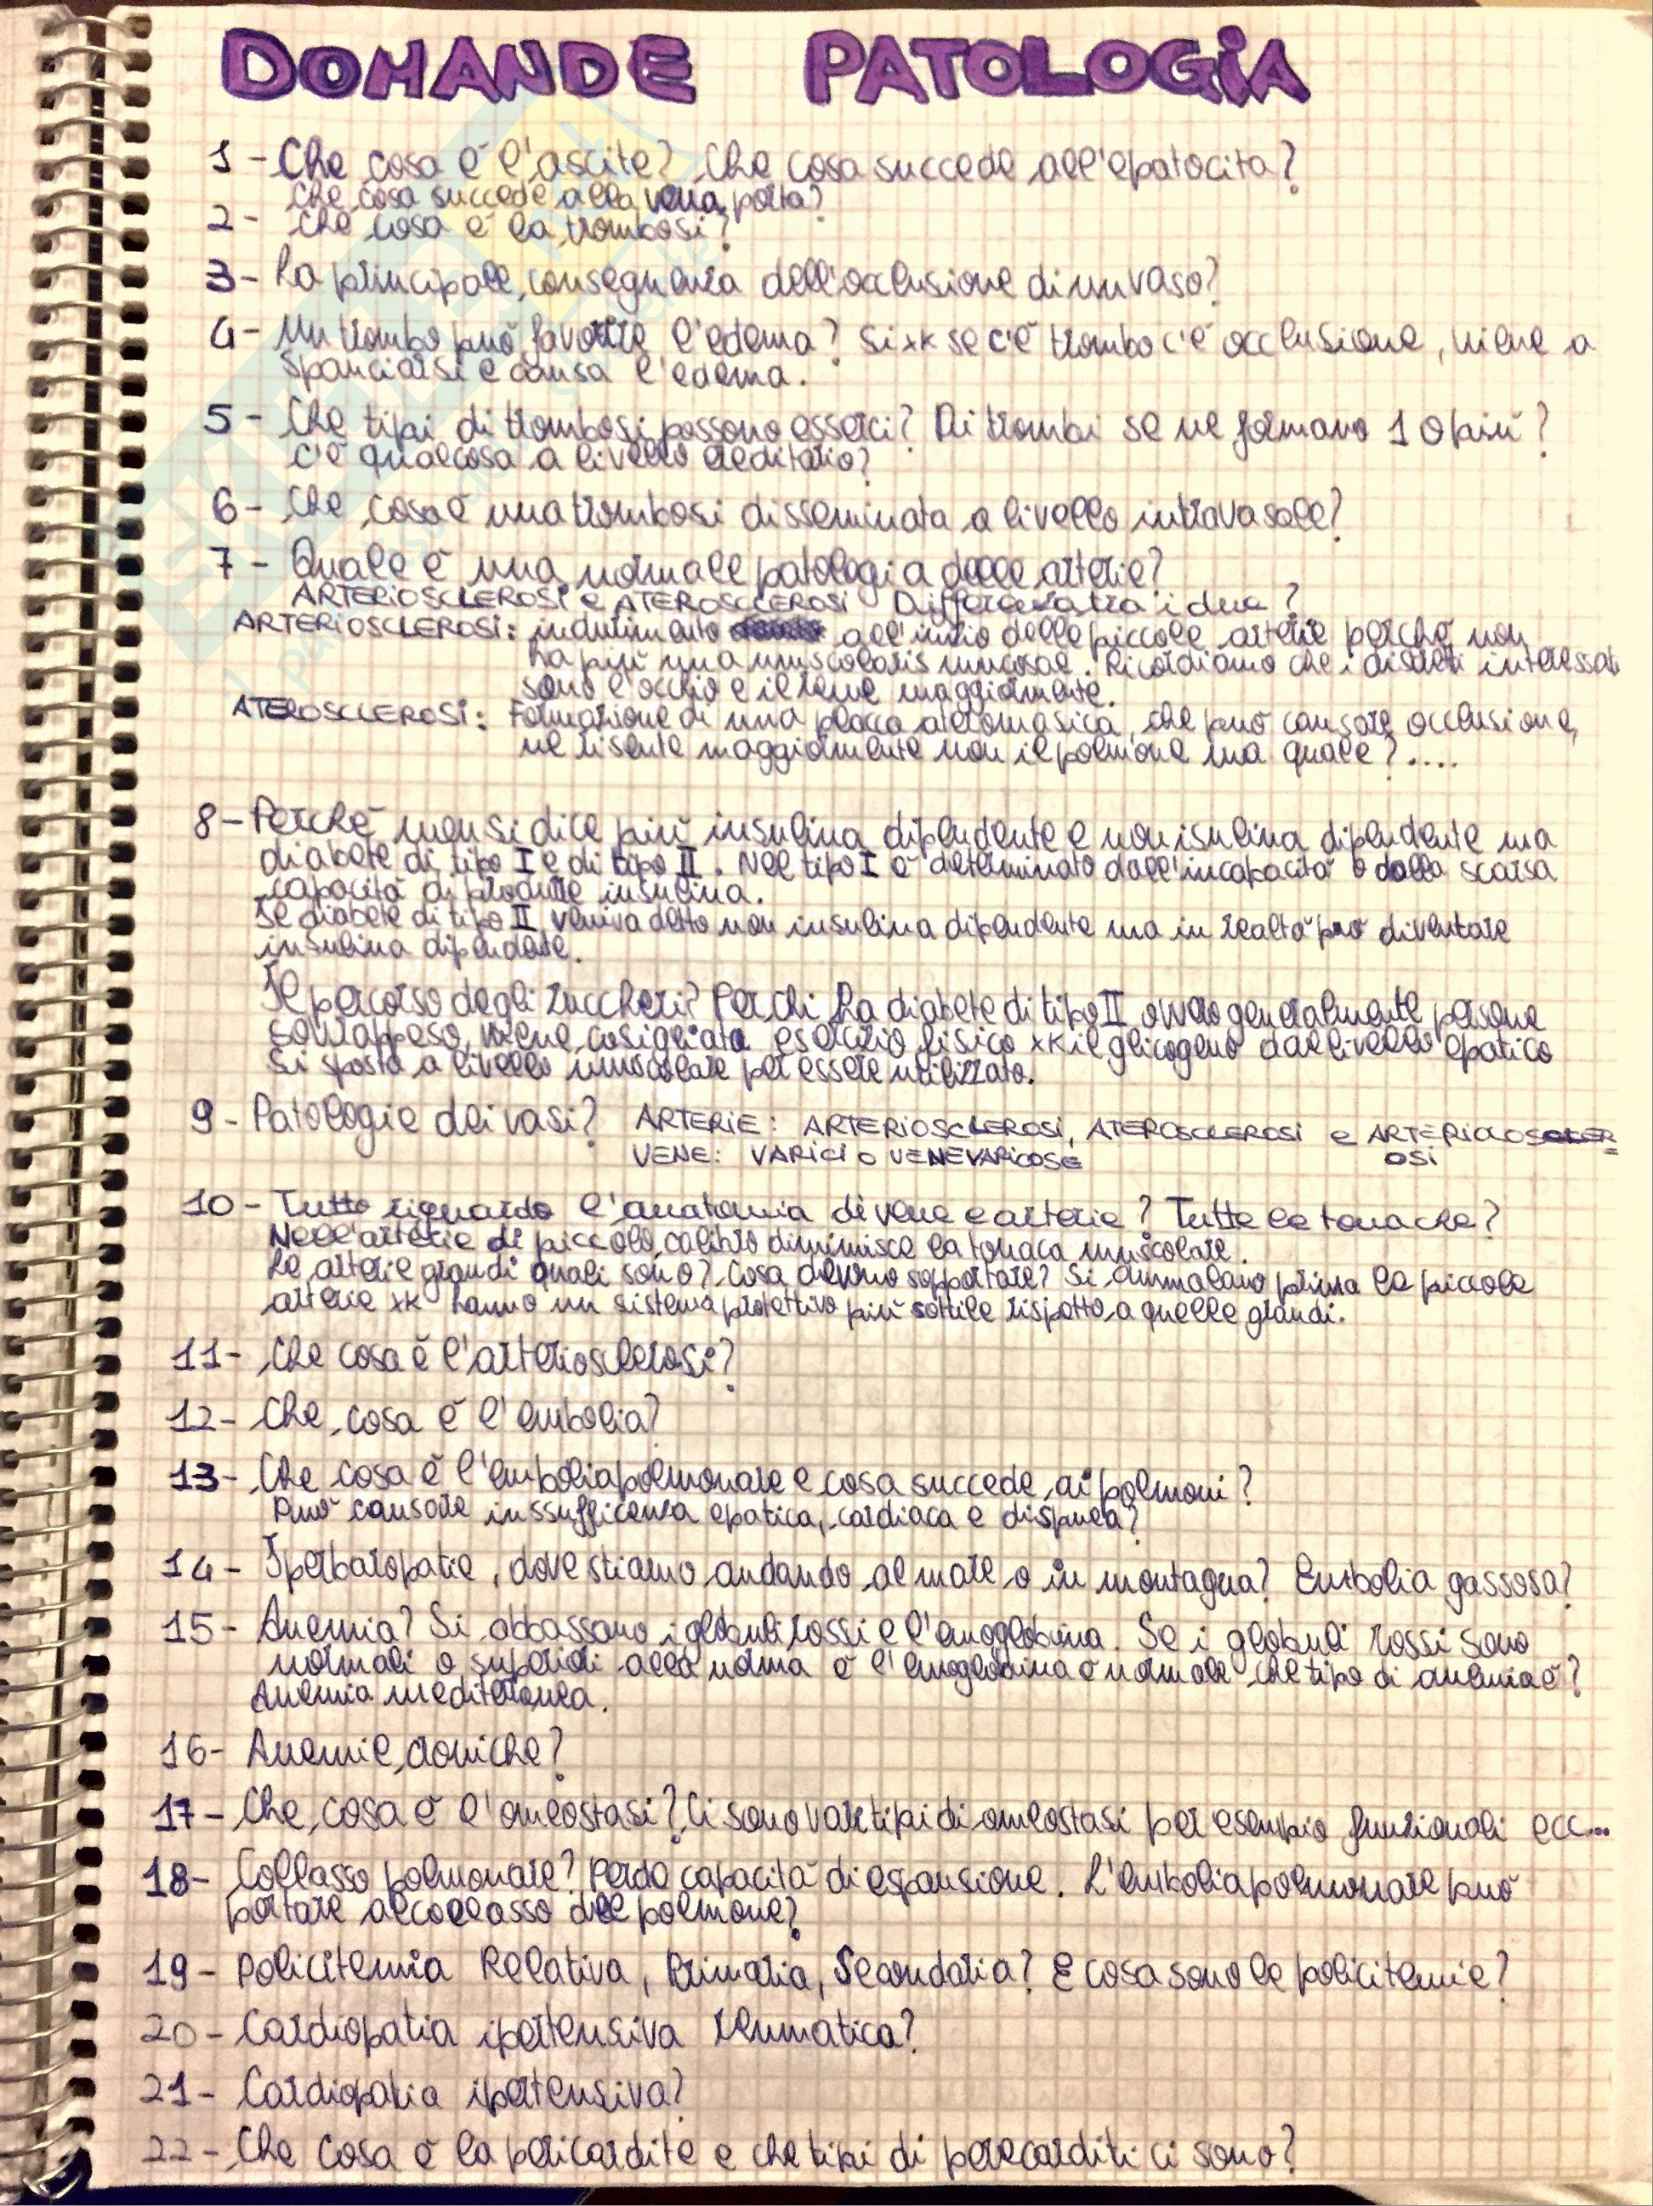 DOMANDE PATOLOGIA
1 - Che cosa è l'ascite? Che cosa succede all'epatocita?
Che cosa succede alla vena porta?
2 - Che cosa è la trombosi?
3 - La principale conseguenza dell'occlusione di un vaso?
4 - Un trombo può favorire l'edema? Si xk se c'è trombo c'è occlusione, viene a
spanciarsi e causa l'edema.
5 - Che tipi di trombosi possono esserci? Di trombi se ne formano 1 o più?
C'è qualcosa a livello ereditario?
6 - Che cosa è una trombosi disseminata a livello intravasale?
7 - Quale è una normale patologia delle arterie?
ARTERIOSCLEROSI e ATEROSCLEROSI Differenza tra i due?
ARTERIOSCLEROSI: indurimento all'inizio delle piccole arterie perchè non
ha più una muscolaris mucosae. Ricordiamo che i distretti interessati
sono l'occhio e il rene maggiormente.
ATEROSCLEROSI: Formazione di una placca ateromasica, che può causare occlusione,
ne risente maggiormente non il polmone ma quale?....
8 - Perchè non si dice più insulina dipendente e non isulina dipendente ma
diabete di tipo I e di tipo II. Nel tipo I è determinato dall'incapacità o dalla scarsa
capacità di produrre insulina.
Il diabete di tipo II veniva detto non insulina dipendente ma in realtà può diventare
insulina dipendente.
Il percorso degli zuccheri? Per chi ha diabete di tipo II ovvero generalmente persone
sovrappeso, viene cosigliata esercizio fisico xk il glicogeno dal livello epatico
si sposta a livello muscolare per essere utilizzato.
9 - Patologie dei vasi? ARTERIE: ARTERIOSCLEROSI, ATEROSCLEROSI e ARTERIOLOSCLER=
OSI
VENE: VARICI o VENE VARICOSE
10 - Tutto riguardo l'anatomia di vene e arterie? Tutte le tonache?
Nell'arterie di piccolo calibro diminuisce la tonaca muscolare.
Le arterie grandi quali sono? Cosa devono sopportare? Si ammalano prima le piccole
arterie xk hanno un sistema protettivo più sottile rispetto a quelle grandi.
11 - Che cosa è l'arteriosclerosi?
12 - Che cosa è l'embolia?
13 - Che cosa è l'embolia polmonare e cosa succede ai polmoni?
Può causare inssufficenza epatica, cardiaca e dispnea?
14 - Iperbaropatie, dove stiamo andando al mare o in montagna? Embolia gassosa?
15 - Anemia? Si abbassano i globuli rossi e l'emoglobina. Se i globuli rossi sono
normali o superiori alla norma e l'emoglobina è normale che tipo di anemia è?
Anemia mediterranea.
16 - Anemie croniche?
17 - Che cosa è l'omeostasi? Ci sono vari tipi di omeostasi per esempio funzionali ecc...
18 - Collasso polmonare? Perdo capacità di espansione. L'embolia polmonare può
portare al collasso del polmone?
19 - Policitemia Relativa, Primaria, Secondaria? E cosa sono le policitemie?
20 - Cardiopatia ipertensiva reumatica?
21 - Cardiopatia ipertensiva?
22 - Che cosa è la pericardite e che tipi di perecarditi ci sono?